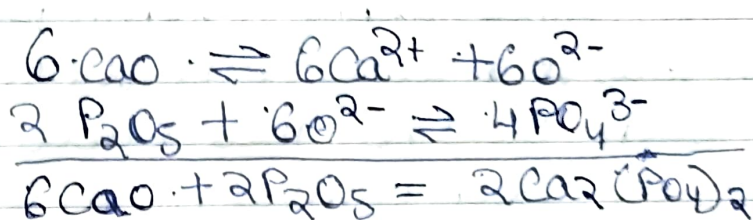 6 CaO ⇌ 6Ca²⁺ + 6O²⁻
2 P₂O₅ + 6O²⁻ ⇌ 4PO₄³⁻
6CaO + 2P₂O₅ = 2Ca₂(PO₄)₂